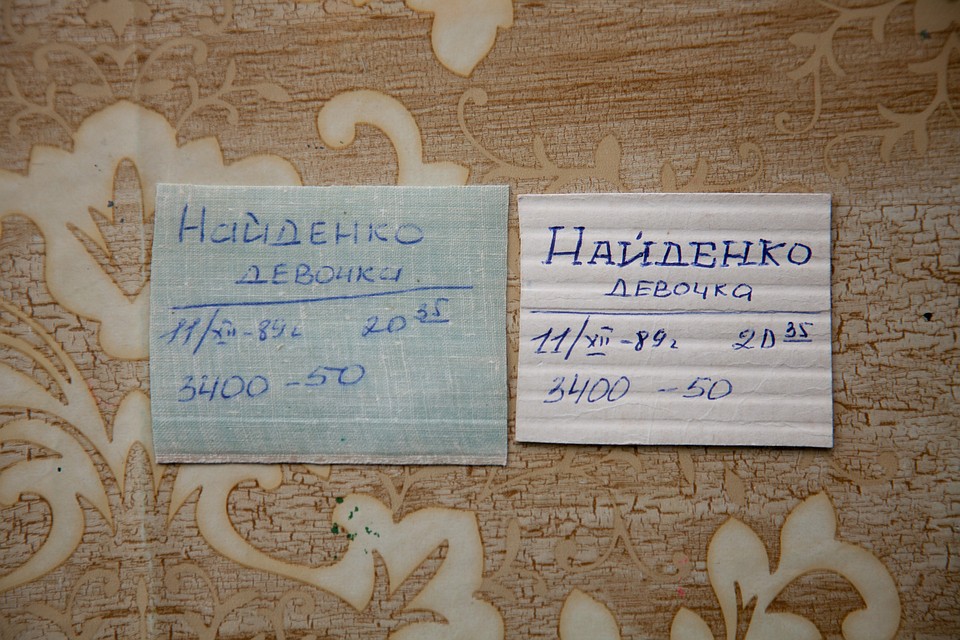 НАЙДЕНКО
ДЕВОЧКА.
11/XII-89г 20 35
3400 - 50
НАЙДЕНКО
ДЕВОЧКА
11/XII-89г 20 35
3400 - 50